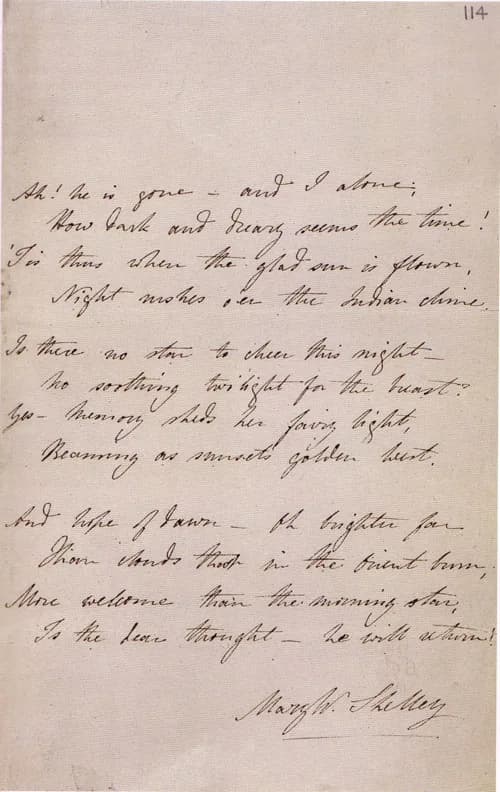 114
Ah! he is gone – and I alone;
How dark and dreary seems the time!
'Tis thus when the glad sun is flown,
Night rushes oer the Indian clime.
Is there no star to cheer this night –
No soothing twilight for the breast?
Yes – Memory sheds her fairy light,
Beaming as sunsets golden west.
And hope of dawn – Oh brighter far
Than clouds that in the Orient burn;
More welcome than the morning star,
Is the dear thought – he will return!
Mary W. Shelley